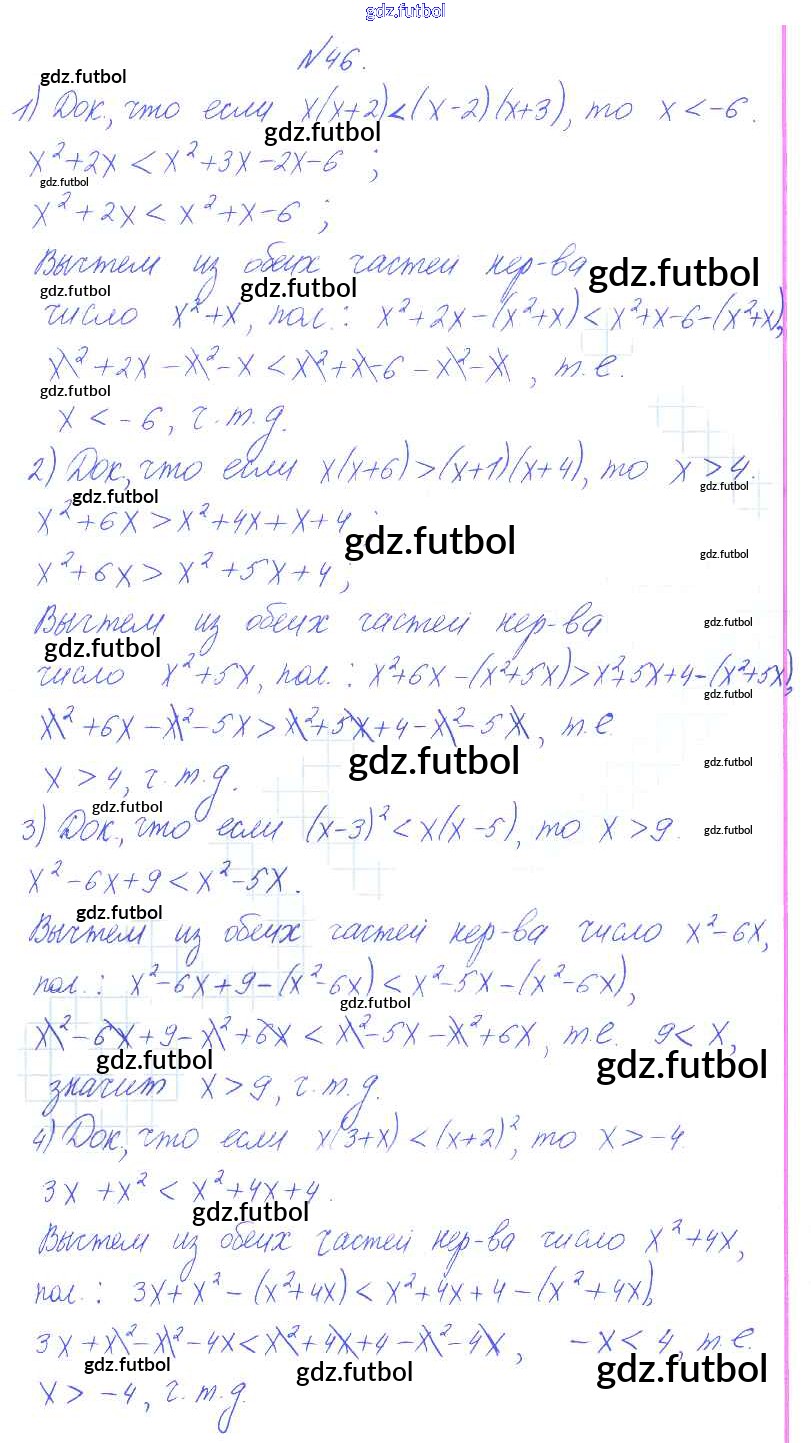 gdz.futbol
№46.
gdz.futbol
1) Док., что если x(x+2)<(x-2)(x+3), то x<-6.
gdz.futbol
x²+2x<x²+3x-2x-6 ;
gdz.futbol
x²+2x<x²+x-6 ;
Вычтем из обеих частей нер-ва
gdz.futbol
gdz.futbol gdz.futbol
число x²+x, пол.: x²+2x-(x²+x)<x²+x-6-(x²+x),
x²+2x-x²-x<x²+x-6-x²-x, т.е.
gdz.futbol
x<-6, ч.т.д.
2) Док., что если x(x+6)>(x+1)(x+4), то x>4.
gdz.futbol gdz.futbol
x²+6x>x²+4x+x+4 ;
gdz.futbol gdz.futbol
x²+6x>x²+5x+4 ;
Вычтем из обеих частей нер-ва
gdz.futbol
gdz.futbol
число x²+5x, пол.: x²+6x-(x²+5x)>x²+5x+4-(x²+5x),
gdz.futbol
x²+6x-x²-5x>x²+5x+4-x²-5x, т.е.
gdz.futbol gdz.futbol
x>4, ч.т.д.
gdz.futbol
3) Док., что если (x-3)²<x(x-5), то x>9.
gdz.futbol
x²-6x+9<x²-5x.
gdz.futbol
Вычтем из обеих частей нер-ва число x²-6x,
пол.: x²-6x+9-(x²-6x)<x²-5x-(x²-6x),
gdz.futbol
x²-6x+9-x²+6x<x²-5x-x²+6x, т.е. 9<x,
gdz.futbol gdz.futbol
значит x>9, ч.т.д.
4) Док., что если x(3+x)<(x+2)², то x>-4.
3x+x²<x²+4x+4.
gdz.futbol
Вычтем из обеих частей нер-ва число x²+4x,
пол.: 3x+x²-(x²+4x)<x²+4x+4-(x²+4x),
3x+x²-x²-4x<x²+4x+4-x²-4x, -x<4, т.е.
gdz.futbol gdz.futbol gdz.futbol
x>-4, ч.т.д.